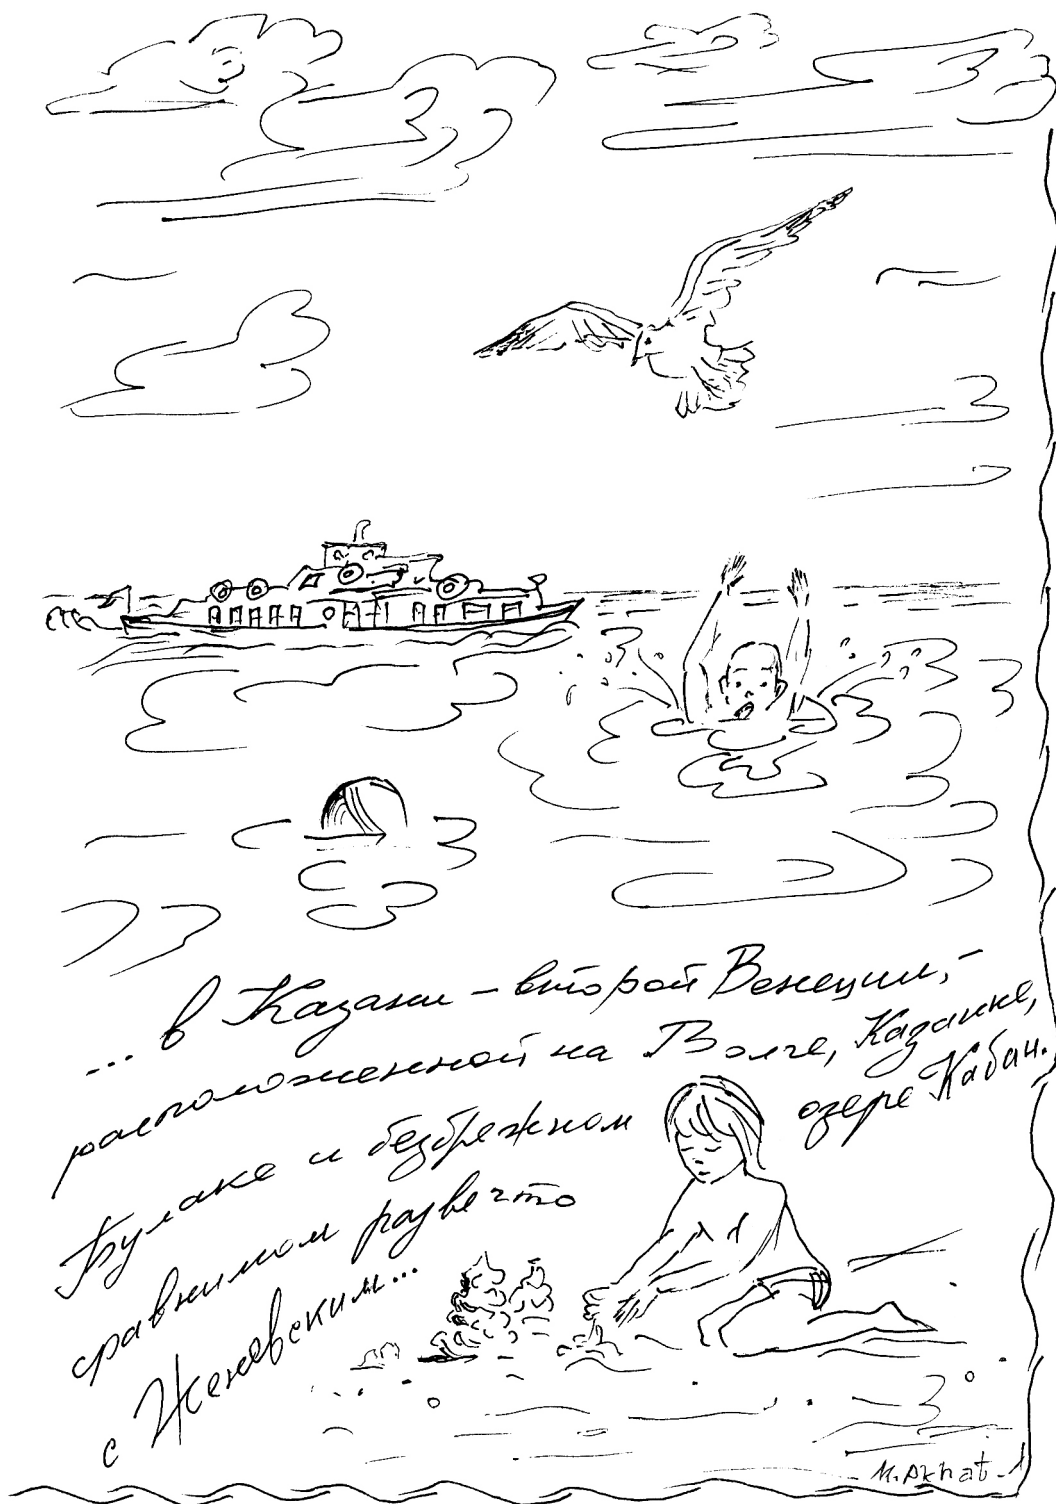 ... в Казани – второй Венеции, –
расположенной на Волге, Казанке,
Булаке и безбрежном озере Кабан.,
сравнимом разве что
с Женевским...
M. Akhat